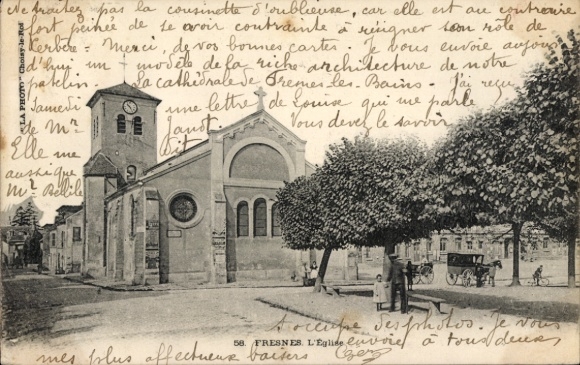 Ne traitez pas la cousinette d'oublieuse, car elle est au contraire
fort peinée de se voir contrainte à reugner son rôle de
Cerbère. Merci, de vos bonnes cartes Je vous envoie aujour
d'hui un modèle de la riche architecture de notre
patelin La cathédrale de Fresnes-les-Bains. J'ai reçu
Samedi une lettre de Louise qui me parle
de Mr. Janot Vous devez le savoir
Elle me
aussi que
Mr.
s'occupe des photos. Je vous
envoie à tous deux
mes plus affectueux baisers
"LA PHOTO" Choisy-le-Roi
58. FRESNES. L'Église